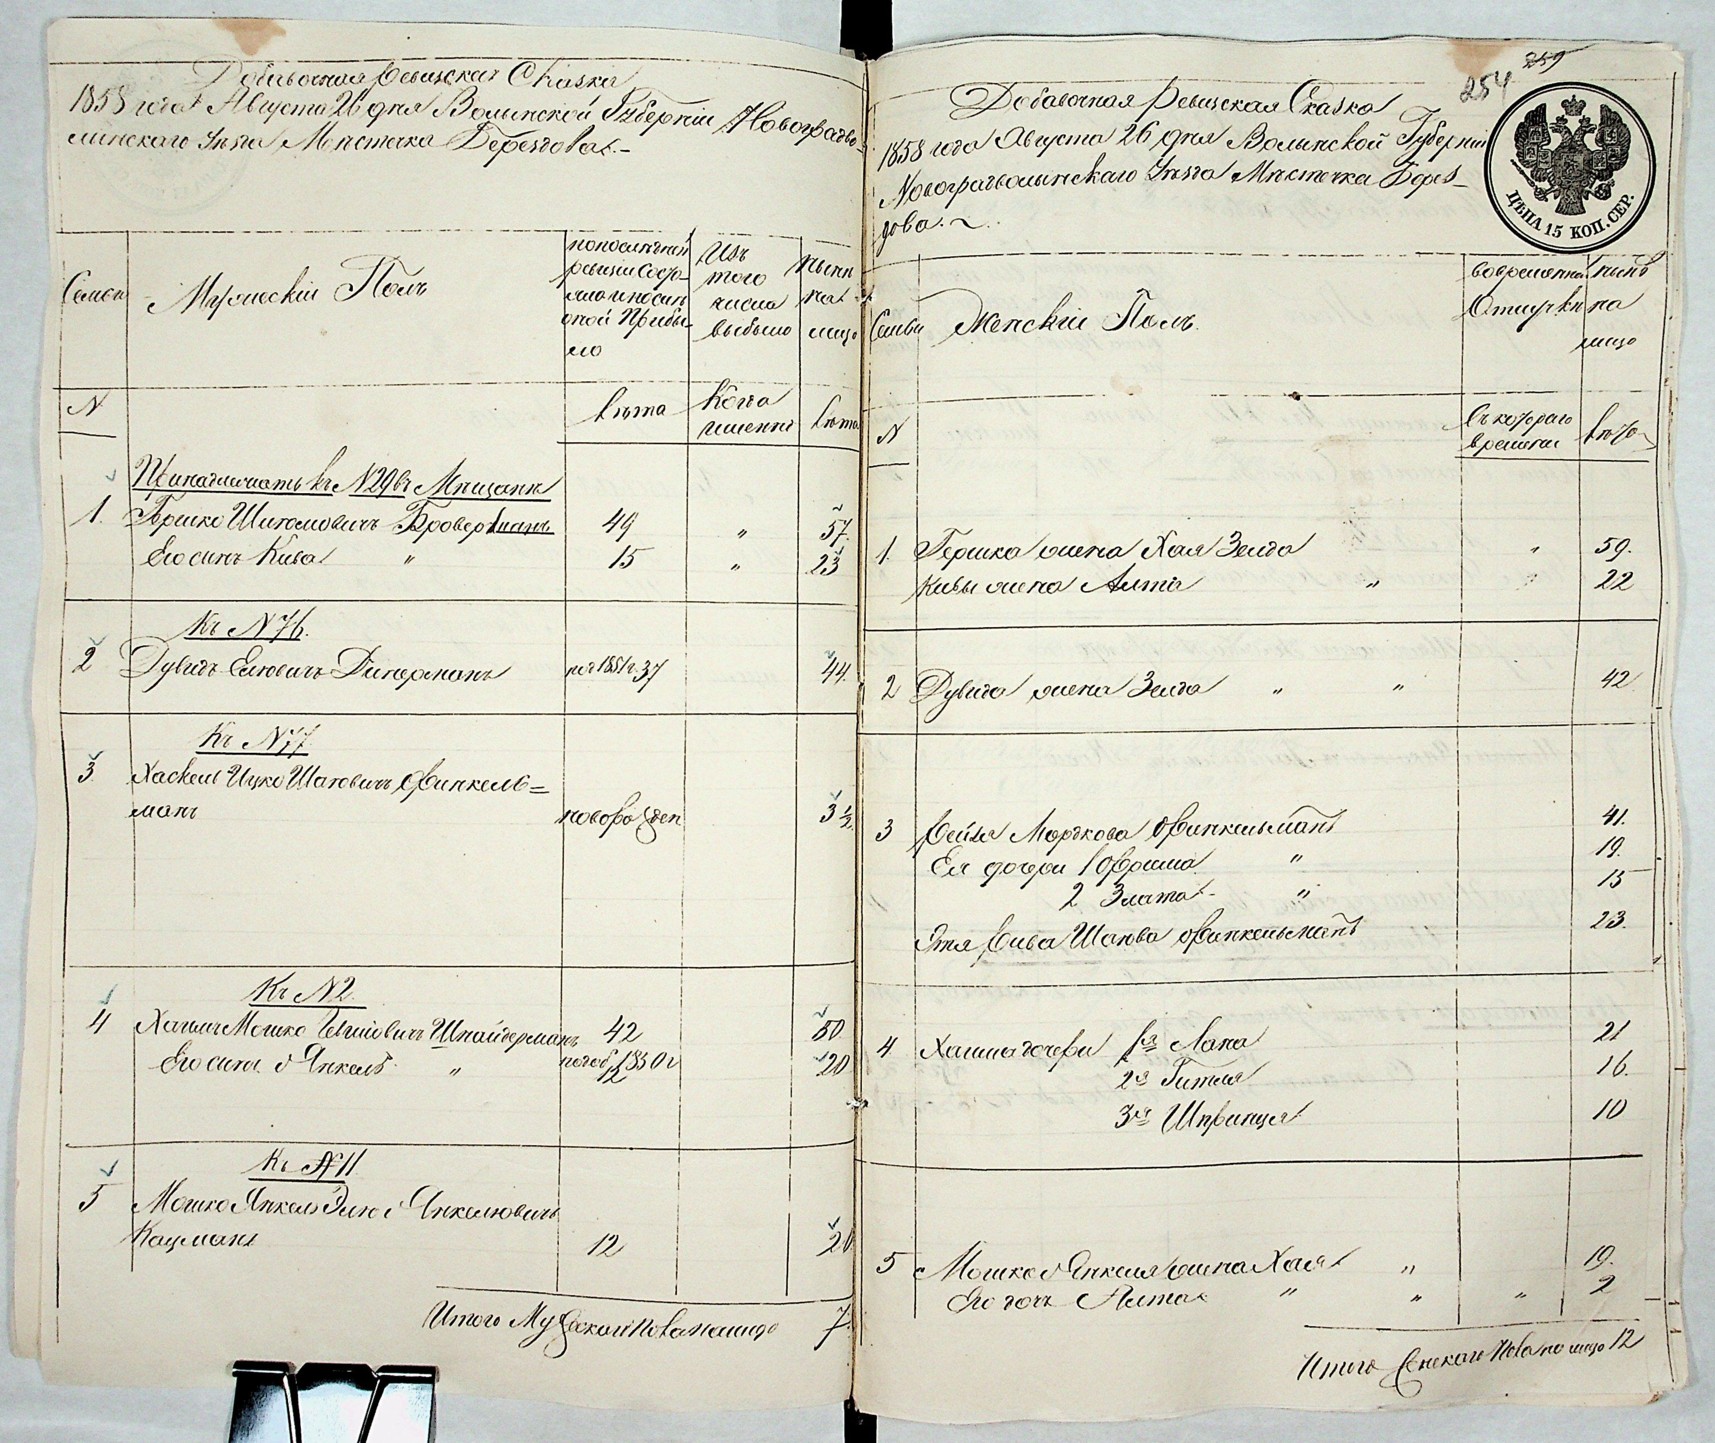 Добавочная Ревизская Сказка
1858 года Августа 26 дня Волынской Губерніи Новоградво-
линскаго Уѣзда Мѣстечка Берездова.-
Семьи
Мужескій Полъ
по послѣдней
ревизіи состо-
яло и послѣ
оной прибы-
ло
Изъ
того
числа
выбыло
Нынѣ
на
лицо
N
Лѣта
Когда
именно
Лѣта
Принадлежатъ къ N 29 въ Мѣщане
1. Гершко Шиомовичъ Броверманъ 49 " 57.
Его сынъ Кива " 15 " 23
Къ N 76.
2 Дувидъ Елювичъ Дикерманъ 1851 г. 37 44.
Къ N 77
3 Хаскель Ицко Шаювичъ Финкель=
манъ новорожден 3 1/2.
Къ N 2
4 Хаимъ Мошко Шнайдерманъ 42 50
Его сынъ Янкель " 1850 г 12 20
Къ N 11
5 Мошко Янкель Элю Янкелювичъ
Кацманъ 12 20
Итого Мужескаго пола на лицо 7.
259
254
Добавочная Ревизская Сказка
1858 года Августа 26 дня Волынской Губерніи
Новоградволынскаго Уѣзда Мѣстечка Берез-
дова. ~
ЦѢНА 15 КОП. СЕР.
Семьи
Женскій Полъ.
во временной
Отлучкѣ
нынѣ
на
лицо
N
Съ котораго
времени
Лѣта
1. Гершка жена Хая Зелда " 59.
Кивы жена Алта " " 22
2 Дувида жена Зелда " " 42
3 Бейла Моръкова Финкельманъ 41.
Ея дочери 1 Фрима " 19.
2 Злата - " 15
Этя Сива Шаюва Финкельманъ 23.
4 Хаима дочери 1я Лана 21
2я Гитля 16.
3я Шпринца 10
5 Мошко Янкеля жена Хая " 19.
Его дочь Алта " " " 2
Итого Женскаго Пола на лицо 12